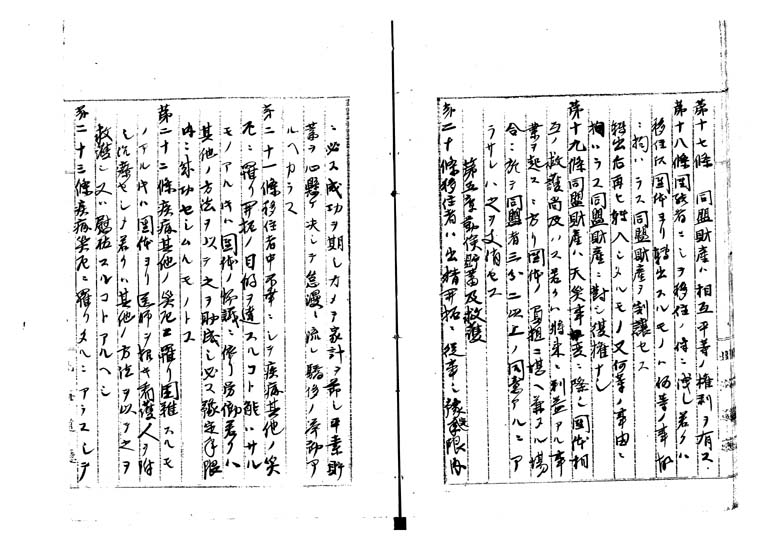 第十七條 同盟財産ハ相互平等ノ権利ヲ有ス
第十八條 同盟者ニシテ移住ノ侍ニ浅シ若クハ
移住后団体ヨリ轉出スルモノハ何等ノ事故
ニ拘ハラス同盟財産ヲ割譲セス
轉出后再ヒ轉入シタルモノ又何等ノ事由ニ
拘ハラス同盟財産ニ對シ復権ナシ
第十九條 同盟財産ハ天災事変ニ際シ団体相
互ノ救護尚及ハス若クハ将来ニ利益アル事
業ヲ起スニ方リ団体ノ負担ニ堪ヘ兼スル場
合ニ於テ同盟者三分ノ二以上ノ同意アルニア
ラサレハ之ヲ支消セス
第五章 勤倹貯蓄及救護
第二十條 移住者ハ出精開拓ニ従事シ豫定年限内
ニ必ス成功ヲ期シカメテ家計ヲ節シ平素貯
蓄ヲ心懸ケ決シテ怠慢ニ流レ驕侈ノ挙動ア
ルヘカラス
第二十一條 移住者中不幸ニシテ疾病其他ノ災
厄ニ罹リ開拓ノ目的ヲ達スルコト能ハサル
モノアルトキハ団体ノ協議ニ依リ労働若クハ
其他ノ方法ヲ以テ之ヲ助成シ必ス豫定年限
内ニ成功セシムルモノトス
第二十二條 疾病其他ノ災厄ニ罹リ困難スルモ
ノアルトキハ団体ヨリ医師ヲ招キ看護人ヲ付
シ治療セシメ若クハ其他ノ方法ヲ以テ之ヲ
救護シ又ハ慰拉スルコトアルヘシ
第二十三條 疾病災厄ニ罹リタルニアラスシテ